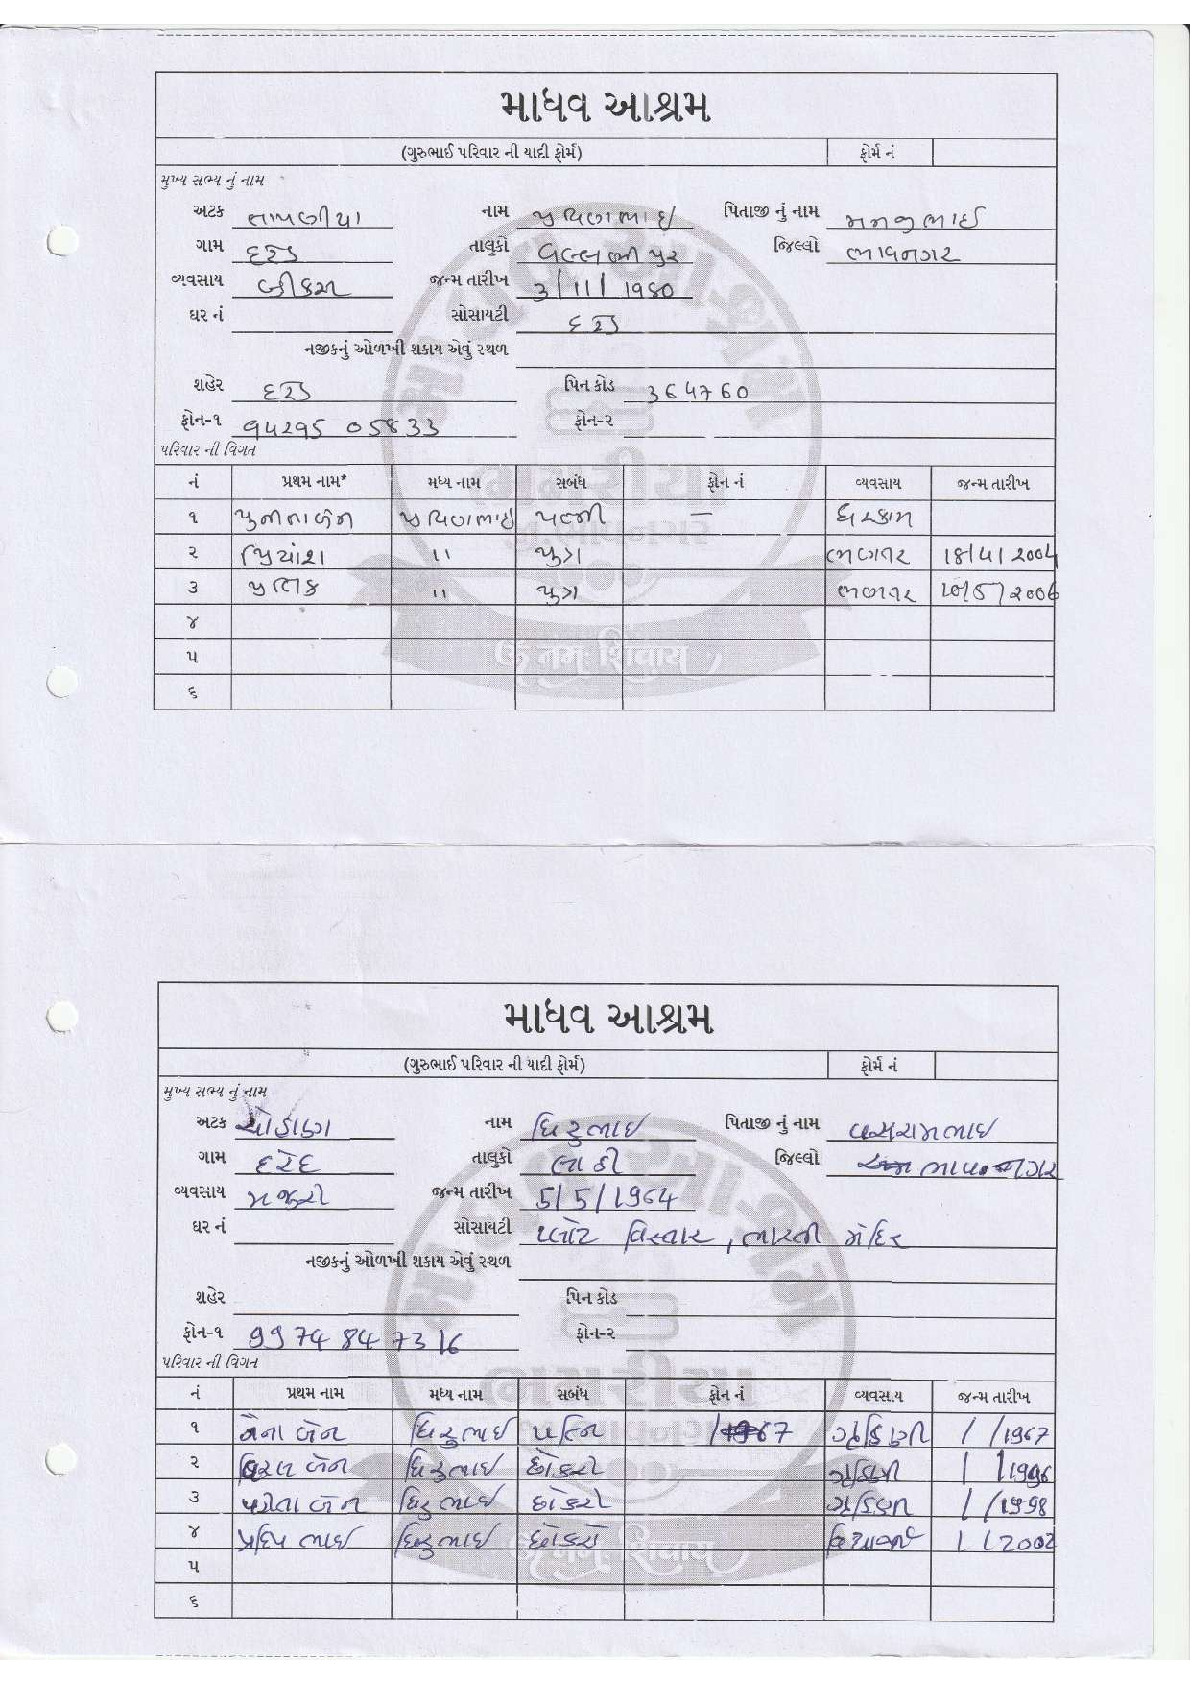 માધવ આશ્રમ
(ગુરુભાઈ પરિવાર ની યાદી ફોર્મ) ફોર્મ નં
મુખ્ય સભ્ય નું નામ
અટક નામ પ્રવિણભાઇ પિતાજી નું નામ મનજીભાઈ
ગામ દરેડ તાલુકો વલ્લભીપુર જિલ્લો ભાવનગર
વ્યવસાય જન્મ તારીખ 3/11/1980
ઘર નં સોસાયટી દરેડ
નજીકનું ઓળખી શકાય એવું સ્થળ
શહેર દરેડ પિન કોડ 364760
ફોન-૧ 94295 05833 ફોન-૨
પરિવાર ની વિગત
નં પ્રથમ નામ* મધ્ય નામ સબંધ ફોન નં વ્યવસાય જન્મ તારીખ
૧ પ્રવિણભાઇ પત્ની — ઘરકામ
૨ પ્રિયાંશ " પુત્ર ભણતર 18/4/2004
૩ " પુત્ર ભણતર
૪
૫
૬
માધવ આશ્રમ
(ગુરુભાઈ પરિવાર ની યાદી ફોર્મ) ફોર્મ નં
મુખ્ય સભ્ય નું નામ
અટક ચૌહાણ નામ ધિરુભાઇ પિતાજી નું નામ
ગામ દરેદ તાલુકો લાઠી જિલ્લો ભાવનગર
વ્યવસાય મજુરી જન્મ તારીખ 5/5/1964
ઘર નં સોસાયટી પ્લોટ વિસ્તાર, મંદિર
નજીકનું ઓળખી શકાય એવું સ્થળ
શહેર પિન કોડ
ફોન-૧ 99748 47316 ફોન-૨
પરિવાર ની વિગત
નં પ્રથમ નામ મધ્ય નામ સબંધ ફોન નં વ્યવસાય જન્મ તારીખ
૧ બેન ધિરુભાઇ પત્નિ ગૃહિણી / /1967
૨ બેન ધિરુભાઇ છોકરી ગૃહિણી / /1996
૩ બેન ધિરુભાઇ છોકરી ગૃહિણી / /1998
૪ ભાઇ ધિરુભાઇ છોકરો / /2002
૫
૬